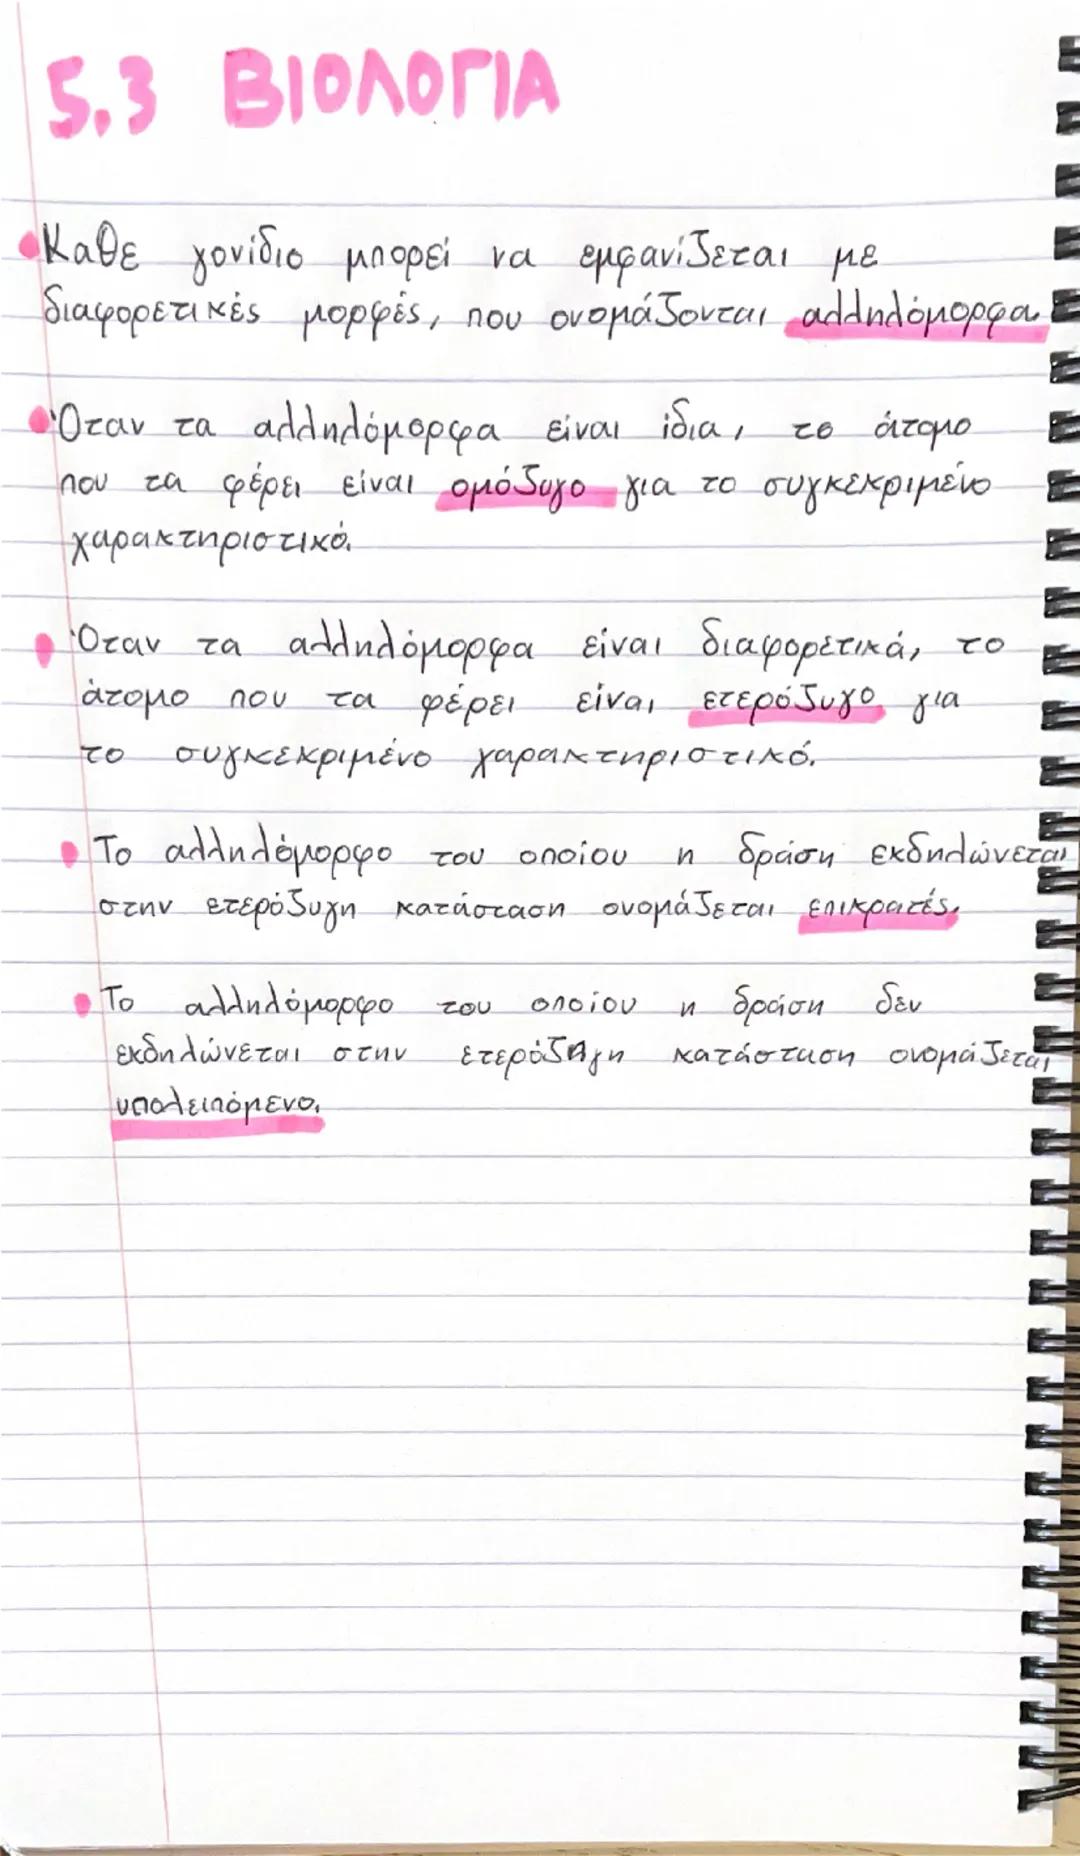 5.3 ΒΙΟΛΟΓΙΑ
Καθε γονίδιο μπορεί να εμφανίζεται με
διαφορετικές μορφές, που ονομάζονται αλληλόμορφα.
Όταν τα αλληλόμορφα είναι ίδια, το άτομο
που τα φέρει είναι ομόζυγο για το συγκεκριμένο
χαρακτηριστικό.
Όταν τα αλληλόμορφα είναι διαφορετικά, το
άτομο που τα φέρει είναι ετερόζυγο για
το συγκεκριμένο χαρακτηριστικό.
Το αλληλόμορφο του οποίου η δράση εκδηλώνεται
στην ετερόζυγη κατάσταση ονομάζεται επικρατές.
Το αλληλόμορφο του οποίου η δράση δεν
εκδηλώνεται στην ετερόζυγη κατάσταση ονομάζεται
υπολειπόμενο.